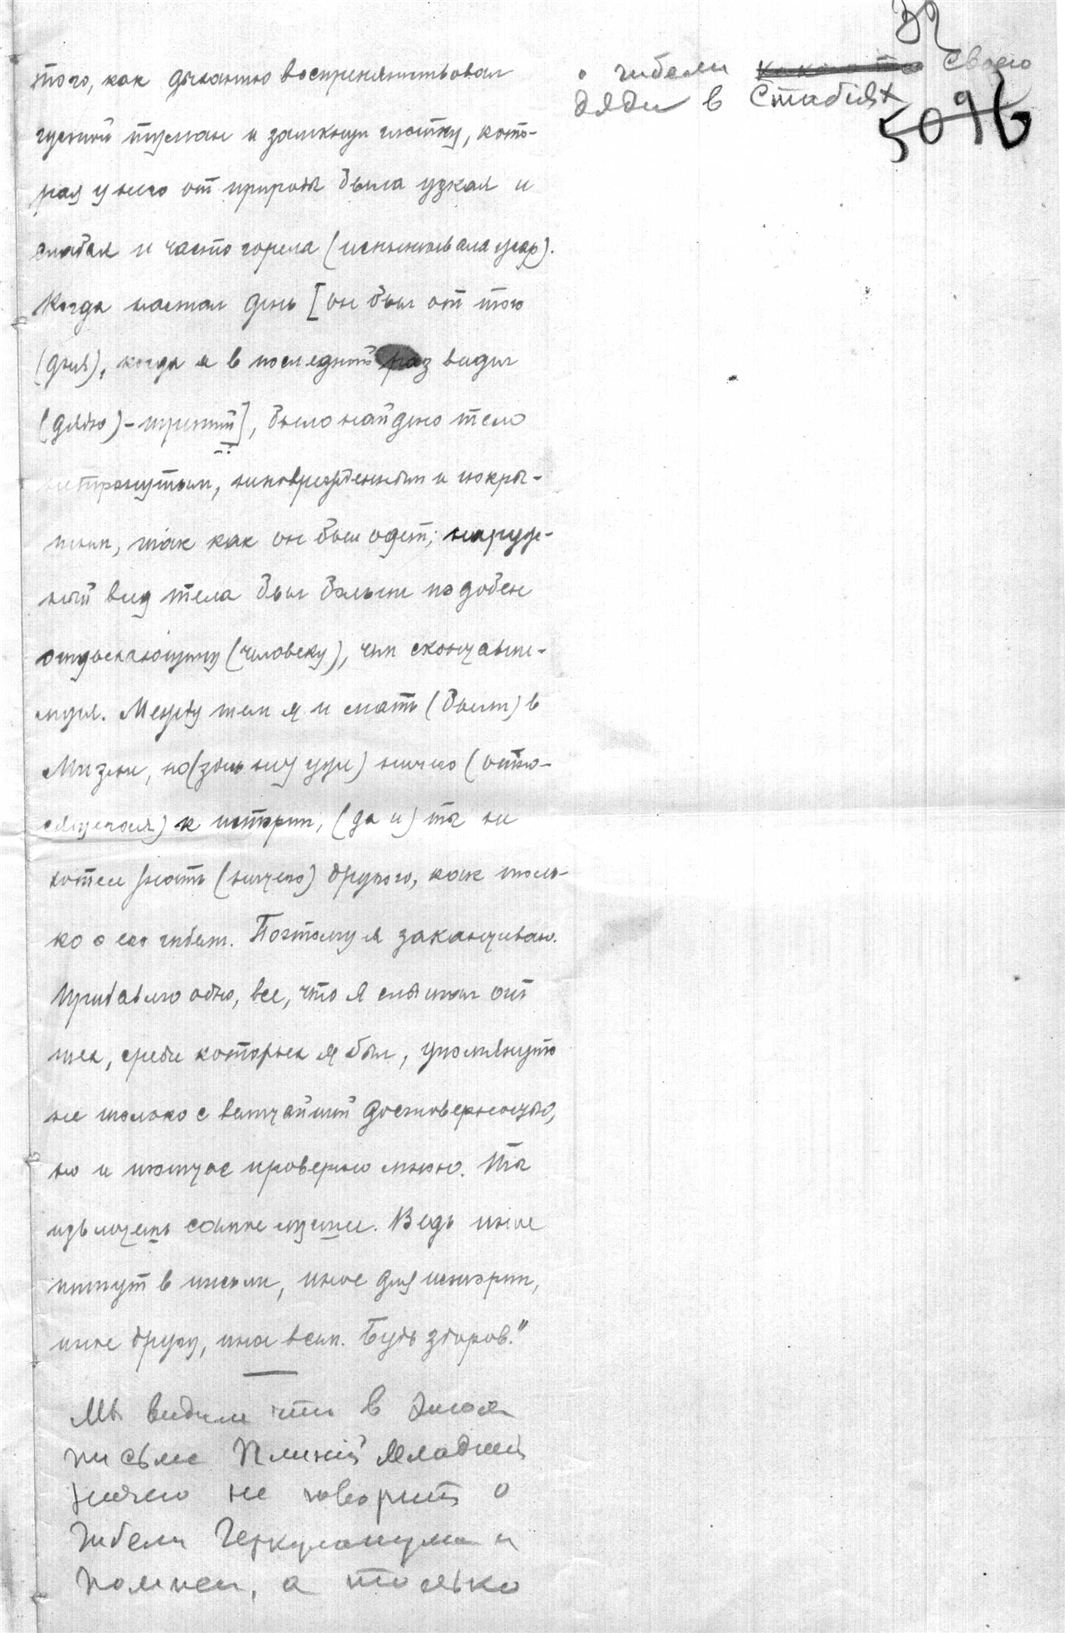 того, как дыханию воспрепятствовал
густой туман и замкнул глотку, кото-
рая у него от природы была узкая и
слабая и часто горела (испытывала жар).
Когда настал день [он был от того
(дня), когда я в последний раз видел
(дядю) – третий], было найдено тело
нетронутым, неповрежденным и покры-
тым, так как он был одет; наруж-
ный вид тела был больше подобен
отдыхающему (человеку), чем скончавше-
муся. Между тем я и мать (были) в
Мизене, но ничего (отно-
сящегося) к истории, (да и) ты не
хотел знать (ничего) другого, как толь-
ко о его гибели. Поэтому я заканчиваю.
Прибавлю одно, все, что я слышал от
тех, среди которых я был, упомянуто
не только с величайшей достоверностью,
но и тотчас проверено мною. Ты
извлечешь самое лучшее. Ведь иное
пишут в письме, иное для истории,
иное другу, иное всем. Будь здоров."
Мы видим что в этом
письме Плиний Младший
ничего не говорит о
гибели Геркуланума и
Помпеи, а только
32
о гибели своего
дяди в Стабіях
5096